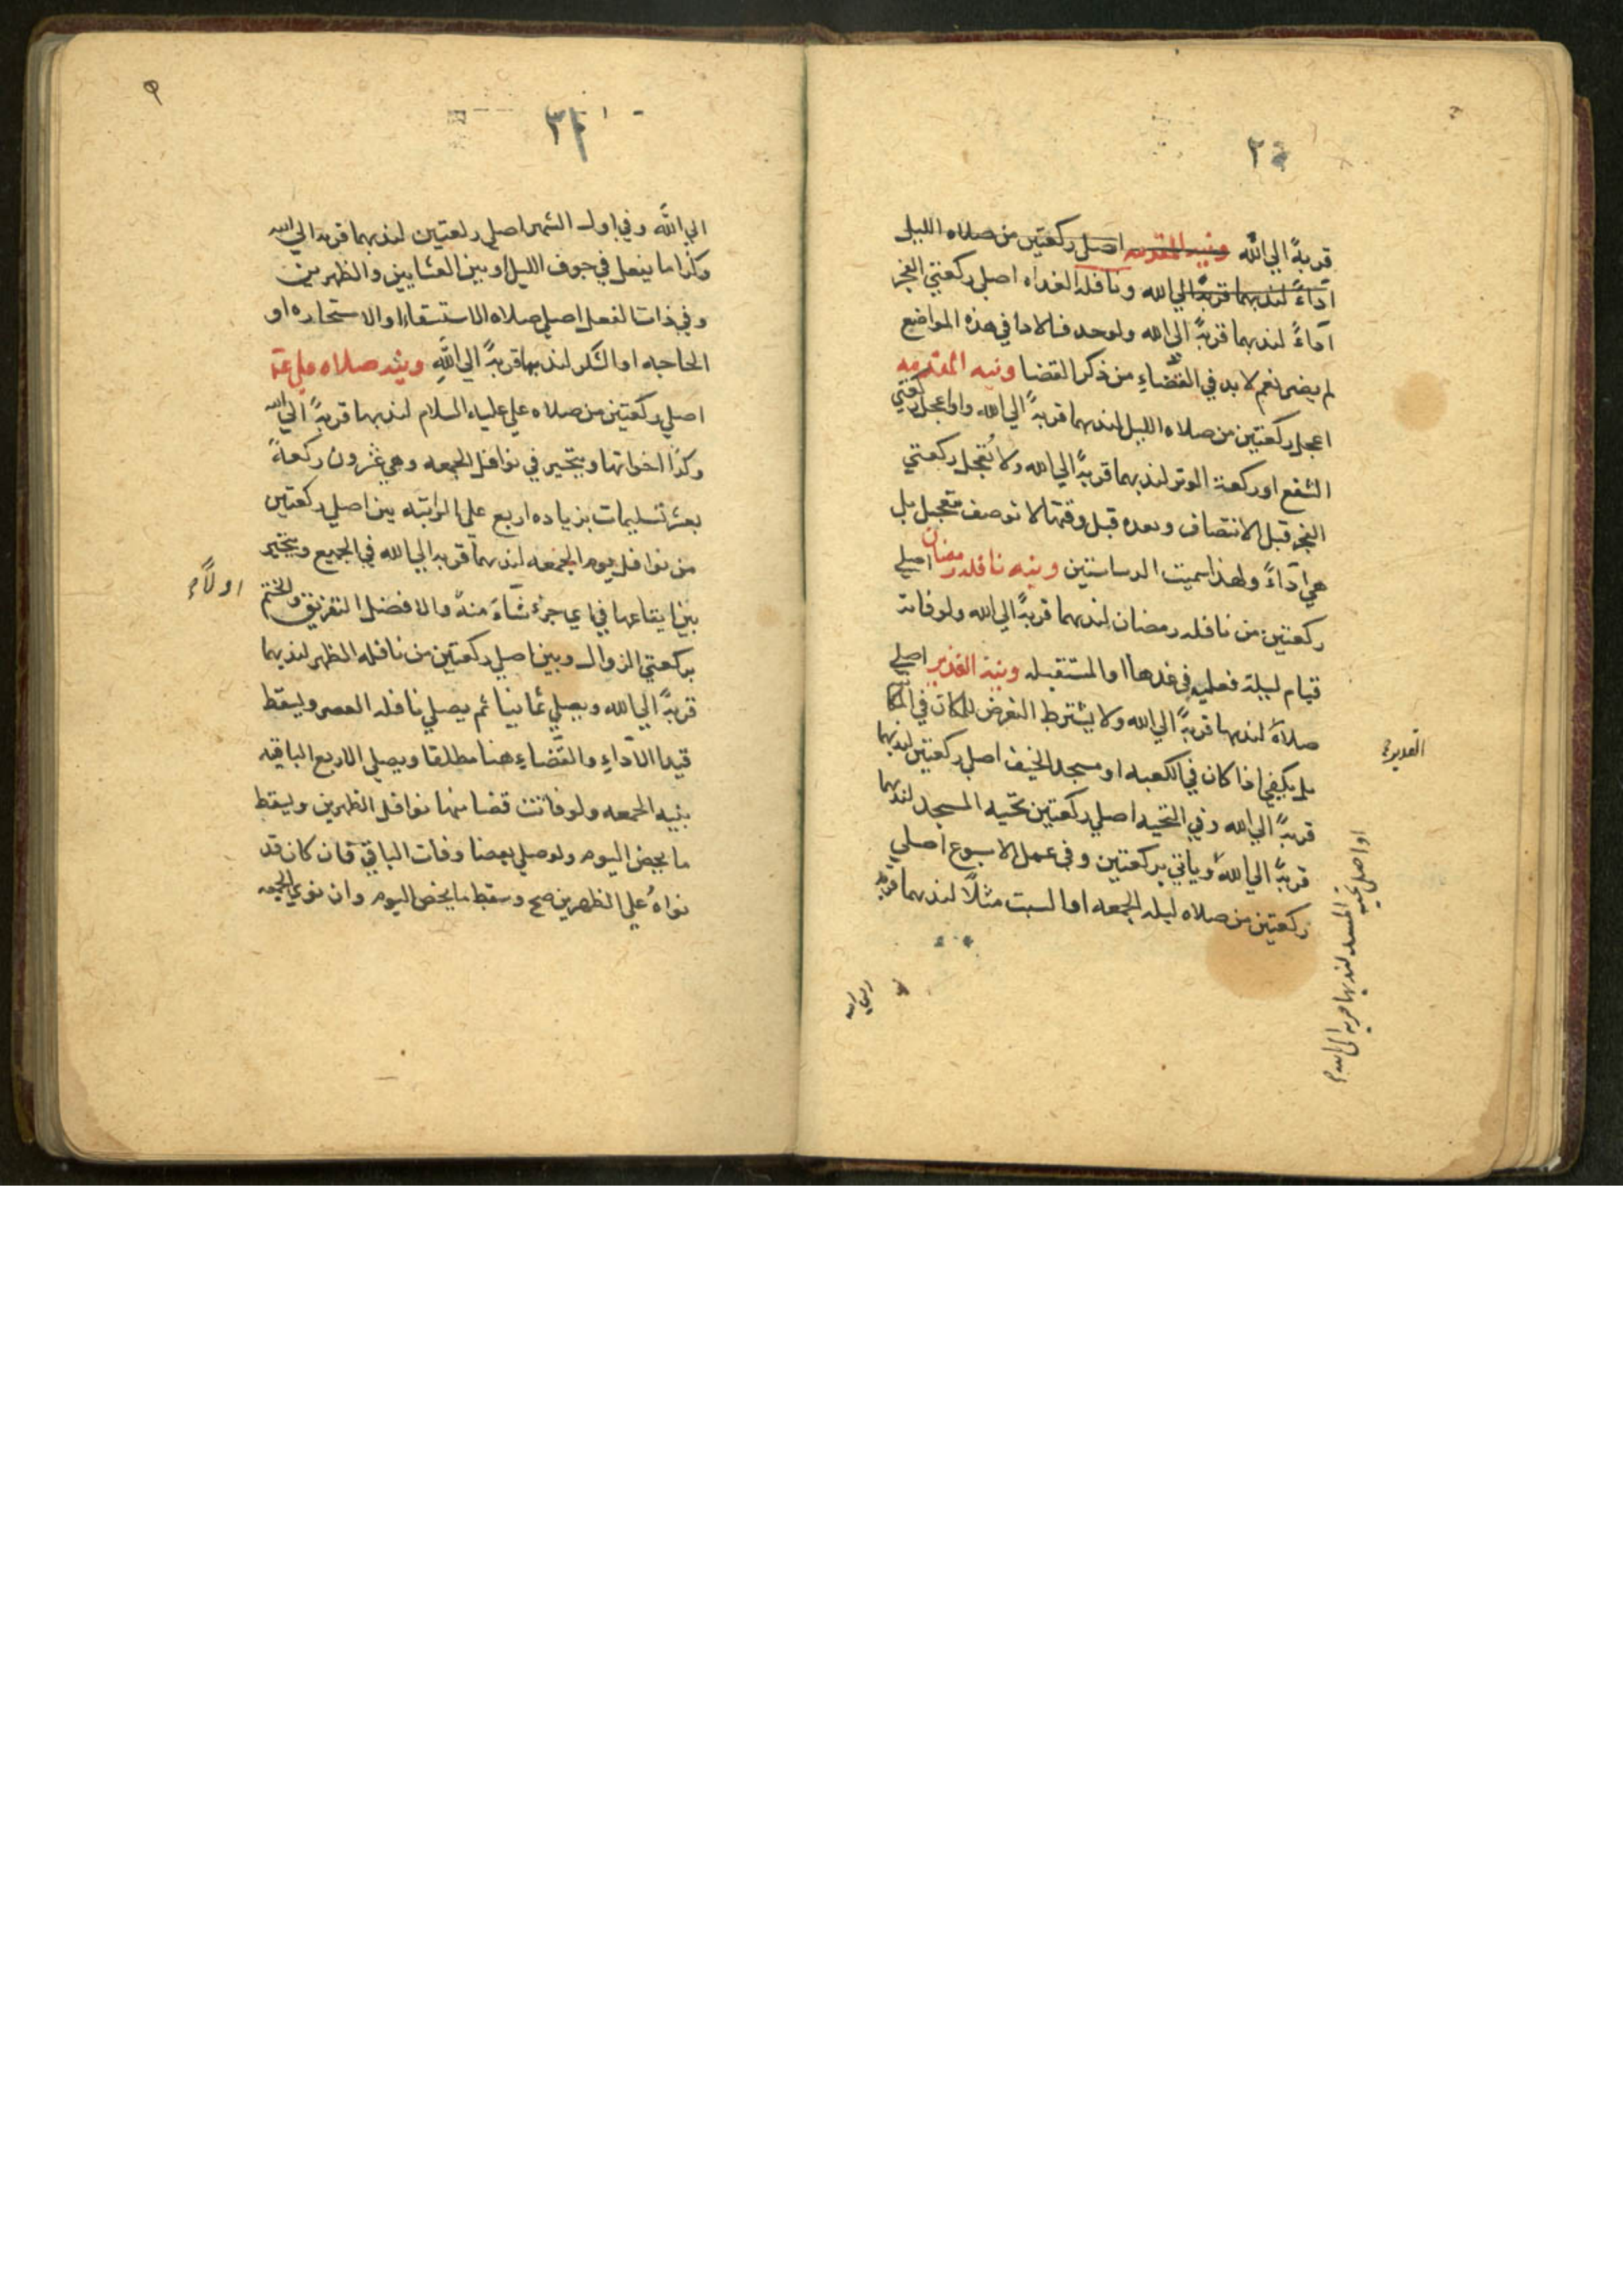 قربةً الي الله ونيه المقدمه اصلي ركعتين من صلاه الليل
آداءً لندبهما قربةً الي الله ونافله الغداه اصلي ركعتي الفجر
آداءً لندبهما قربةً الي الله ولوحد فالادا في هذه المواضع
لم يضر نعم لابد في القضاءِ من ذكر القضا ونيه المقدمه
اعجل ركعتين من صلاه الليل لندبهما قربةً الي الله واواعجل ركعتي
الشفع اوركعة الوتر لندبهما قربةً الي الله ولا تُعجل ركعتي
الفجر قبل الانتصاف وبعده قبل وقتها لا توصف بتعجيل بل
هي آداءً ولهذا سميت الدساستين ونيه نافله رمضان اصلي
ركعتين من نافله رمضان لندبهما قربةً الي الله ولو فاته
قيام ليلة فعليه في غدها او المستقبله ونية الغدير اصلي
صلاة لندبها قربةً الي الله ولا يشترط التعرض للمكان في
بل يكفي اذا كان في الكعبه او مسجد الخيف اصلي ركعتين لندبهما
قربةً الي الله وفي التحيه اصلي ركعتين تحيه المسجد لندبهما
قربةً الي الله وياتي بركعتين وفي عمل الاسبوع اصلي
ركعتين من صلاه ليله الجمعه او السبت مثلاً لندبهما قربه
الغدير
او اصلي تحيه المسجد لندبها قربه الي الله
٩
الي الله وفي اول الشهر اصلي ركعتين لندبهما قربه الي الله
وكذا ما يفعل في جوف الليل او بين العشايين والظهرين
وفي ذات الفعل اصلي صلاه الاستسقاء او الاستخاره او
الحاجه او الشكر لندبها قربةً الي اللهِ ونية صلاه علي عمّ
اصلي ركعتين من صلاه علي عليه السلام لندبهما قربةً الي الله
وكذا اخواتها ويتخير في نوافل الجمعه وهي عشرون ركعةً
بعشر تسليمات بزياده اربع علي الراتبه بين اصلي ركعتين
من نوافل يوم الجمعه لندبهما قربه الي الله في الجميع ويتخير
بين ايقاعها في اي جزءٍ شاءَ منهُ والافضل التفريق والختم
بركعتي الزوال وبين اصلي ركعتين من نافله الظهر لندبهما
قربةً الي الله ويصلي ثمانيا ثم يصلي نافله العصر ويسقط
قيدا الآداءِ والقضاءِ هنا مطلقا ويصلي الاربع الباقيه
بنيه الجمعه ولو فاتت قضا منها نوافل الظهرين ويسقط
ما يخص اليوم ولو صلي بعضا وفات الباقي فان كان قد
نواهُ علي الظهرين صح وسقط ما يخص اليوم وان نوي الجمعه
اولاً